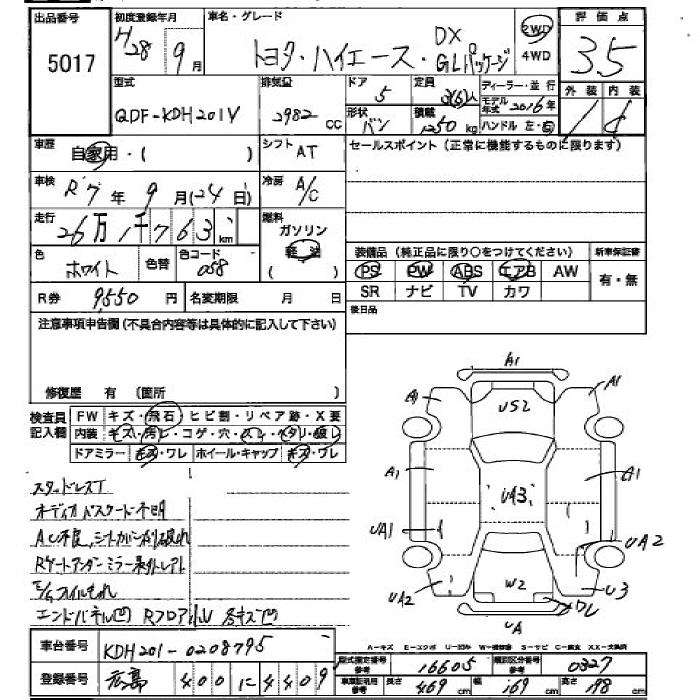 出品番号
5017
初度登録年月
H28 9月
車名・グレード
トヨタ・ハイエース・DX GLパッケージ
2WD
4WD
評価点
3.5
外装 内装
型式
QDF-KDH201V
排気量
2982 CC
ドア
5
形状
バン
定員
3(6)人
積載
1250 kg
ディーラー・並行
モデル年式 2016年
ハンドル 左・右
車歴
自家用・( )
シフト
AT
セールスポイント(正常に機能するものに限ります)
車検
R7年9月(24日)
冷房
A/C
走行
26万1千763km
燃料
ガソリン
軽油
( )
色
ホワイト
色替
色コード
058
装備品(純正品に限り○をつけてください)
新車保証書
PS PW ABS エアB AW
有・無
SR ナビ TV カワ
R券 9550円
名変期限 月 日
後日品
注意事項申告欄(不具合内容等は具体的に記入して下さい)
修復歴 有 (箇所 )
検査員記入欄
FW キズ・飛石・ヒビ割・リペア跡・X要
内装 キズ・汚レ・コゲ・穴・スレ・ヘタリ・破レ
ドアミラー キズ・ワレ ホイール・キャップ キズ・ワレ
スタッドレスT
オーディオバスケード不明
エンドパネル凹
A1
A1
A1
US2
A1
A1
UA3
UA1
UA2
UA2
W2
U3
ワレ
UA
A-キズ E-エクボ U-凹み W-補修跡 S-サビ C-腐食 XX-交換済
車台番号
KDH201-0208795
登録番号
広島 400 に 4409
型式指定番号
参考
16605
類別区分番号
参考
0327
車庫証明用
参考
長さ 469 cm
幅 169 cm
高さ 198 cm